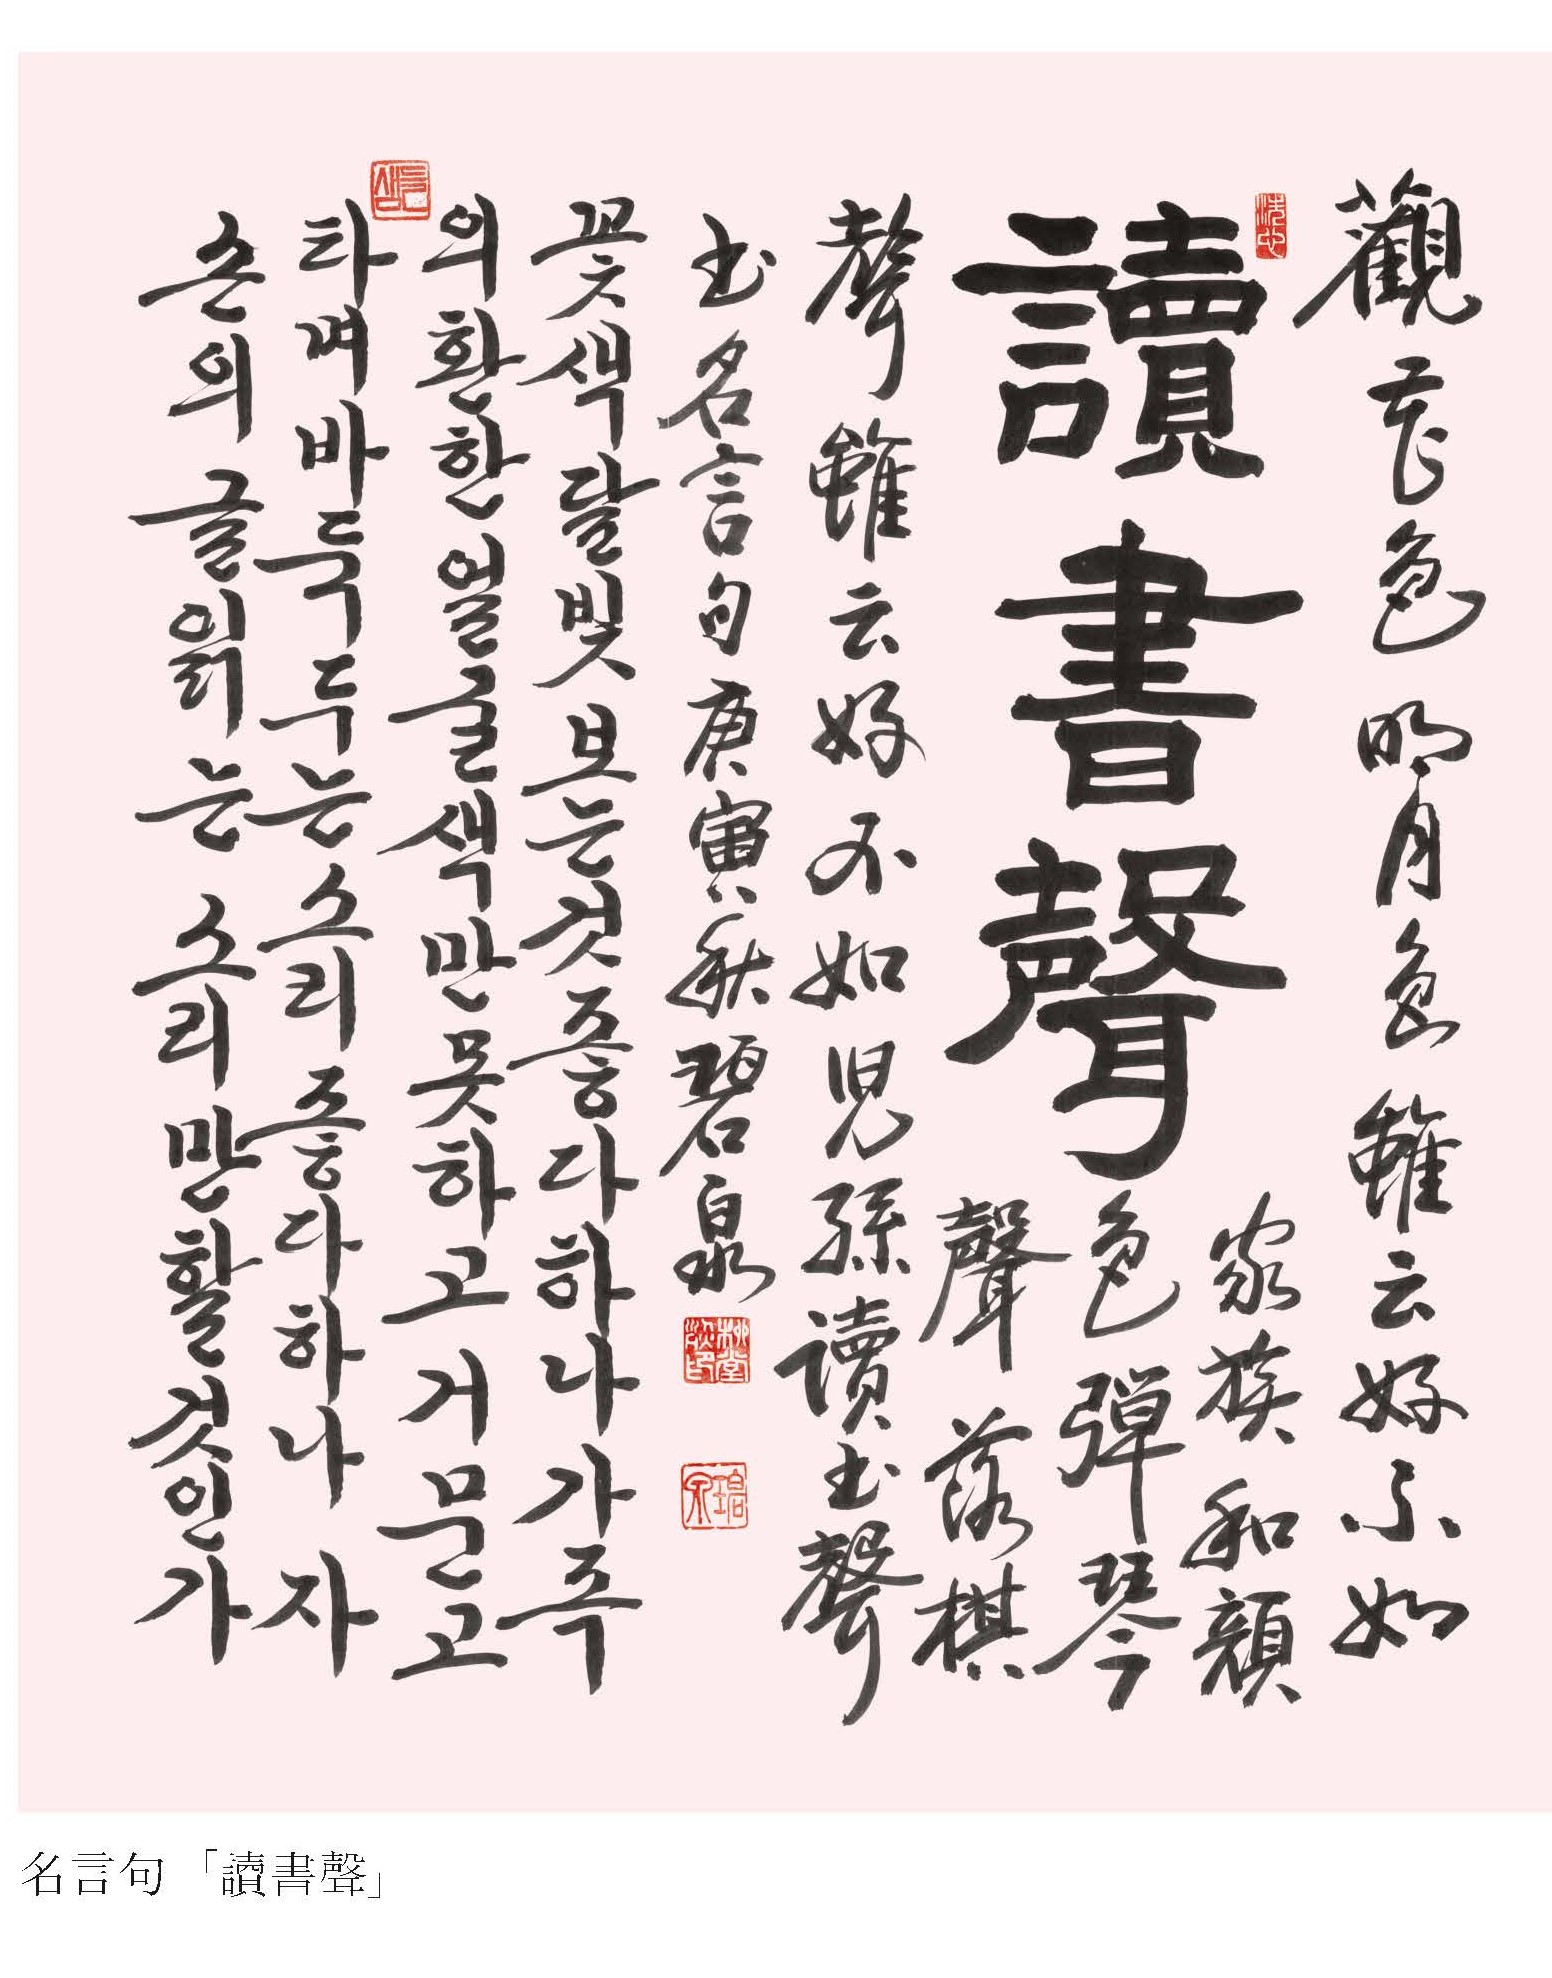 觀花色明月色雖云好不如
讀書聲
家族和顔
色彈琴
聲落棋
聲雖云好不如児孫讀书聲
书名言句庚寅秋碧泉
꽃색달빛보는것좋다하나가족
의환한얼굴색만못하고거문고
타며바둑두는소리좋다하나 자
손의글읽는소리만할것인가
名言句 「讀書聲」